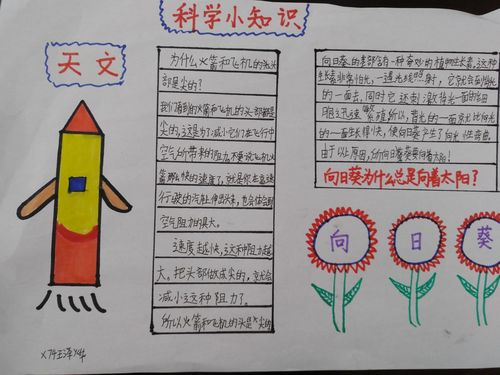 科学小知识
天文
为什么火箭和飞机的头
部是尖的?
我们看到的火箭和飞机的头部都是
尖的,这是为了减小它们在飞行中
空气所带来的阻力,不要说飞机火
箭那么快的速度了,就是你在高速
行驶的汽车上伸出头来,也会体会到
空气阻力的具大。
速度越快,这种阻力越
大。把头部做成尖的,就会
减小这种阻力了。
所以火箭和飞机的头是尖的
向日葵的茎部含有一种奇妙的植物生长素。这种
生长素非常怕光,一遇光线照射,它就会到背光
的一面去,同时它还刺激背光一面的细
胞迅速繁殖所以,背光的一面就比向光
的一面生长得快,使向日葵产生了向光性弯曲。
由于以上原因,所向日葵要向着太阳!
向日葵为什么总是向着太阳?
向 日 葵